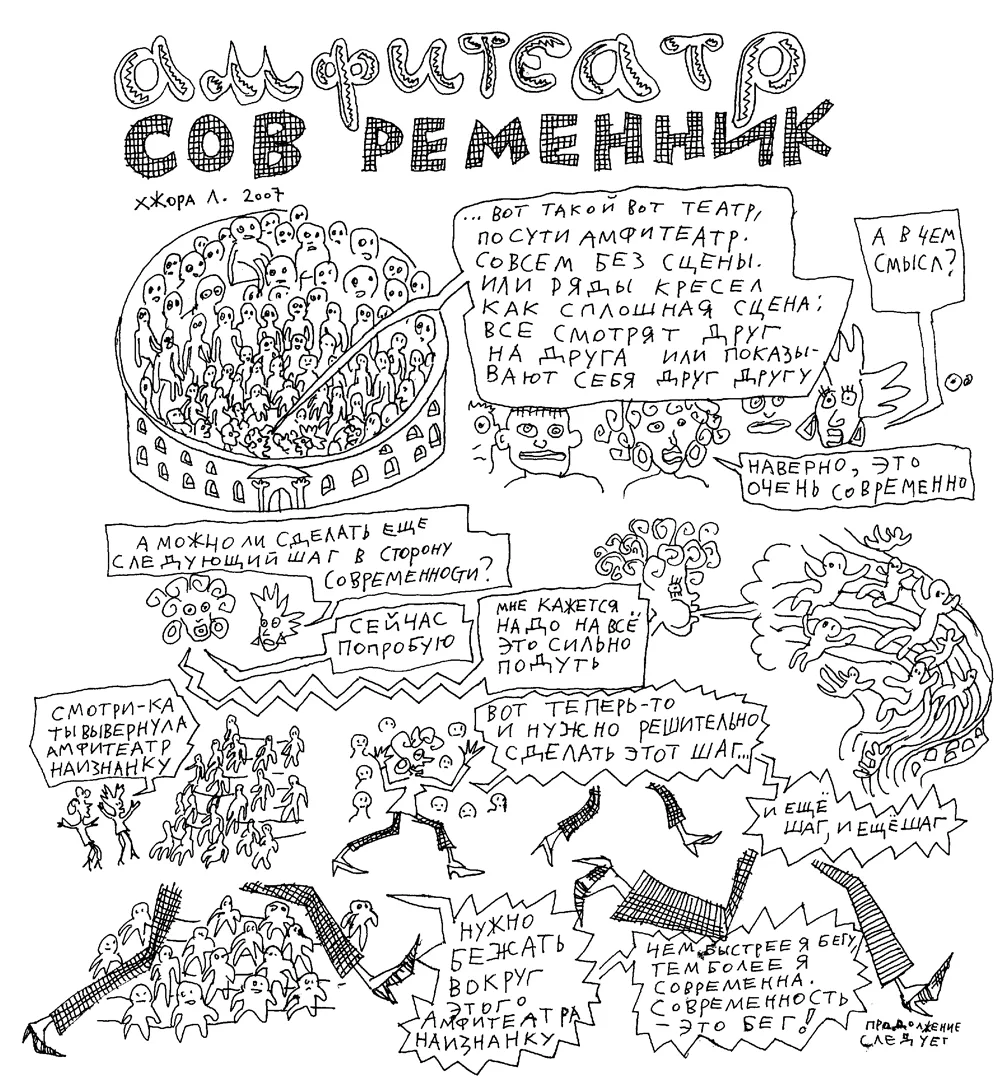 амфитеатр
СОВРЕМЕННИК
ХЖОРА Л. 2007
...ВОТ ТАКОЙ ВОТ ТЕАТР,
ПО СУТИ АМФИТЕАТР.
СОВСЕМ БЕЗ СЦЕНЫ.
ИЛИ РЯДЫ КРЕСЕЛ
КАК СПЛОШНАЯ СЦЕНА:
ВСЕ СМОТРЯТ ДРУГ
НА ДРУГА ИЛИ ПОКАЗЫ-
ВАЮТ СЕБЯ ДРУГ ДРУГУ
А В ЧЕМ
СМЫСЛ?
НАВЕРНО, ЭТО
ОЧЕНЬ СОВРЕМЕННО
А МОЖНО ЛИ СДЕЛАТЬ ЕЩЕ
СЛЕДУЮЩИЙ ШАГ В СТОРОНУ
СОВРЕМЕННОСТИ?
СЕЙЧАС
ПОПРОБУЮ
МНЕ КАЖЕТСЯ
НАДО НА ВСЁ
ЭТО СИЛЬНО
ПОДУТЬ
СМОТРИ-КА
ТЫ ВЫВЕРНУЛА
АМФИТЕАТР
НАИЗНАНКУ
ВОТ ТЕПЕРЬ-ТО
И НУЖНО РЕШИТЕЛЬНО
СДЕЛАТЬ ЭТОТ ШАГ...
И ЕЩЁ
ШАГ, И ЕЩЁ ШАГ
НУЖНО
БЕЖАТЬ
ВОКРУГ
ЭТОГО
АМФИТЕАТРА
НАИЗНАНКУ
ЧЕМ БЫСТРЕЕ Я БЕГУ,
ТЕМ БОЛЕЕ Я
СОВРЕМЕННА.
СОВРЕМЕННОСТЬ
– ЭТО БЕГ!
ПРОДОЛЖЕНИЕ
СЛЕДУЕТ